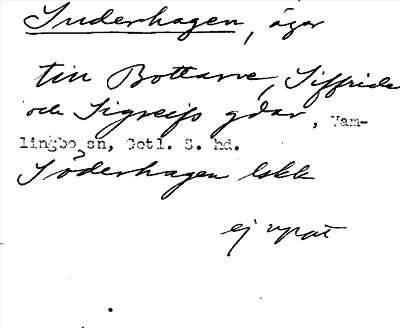 Suderhagen, ägor
till Bottarve, Siffride
och Sigreifs gdar, Vam-
lingbo sn, Gotl. S. hd.
Söderhagen lskk
ej uppt